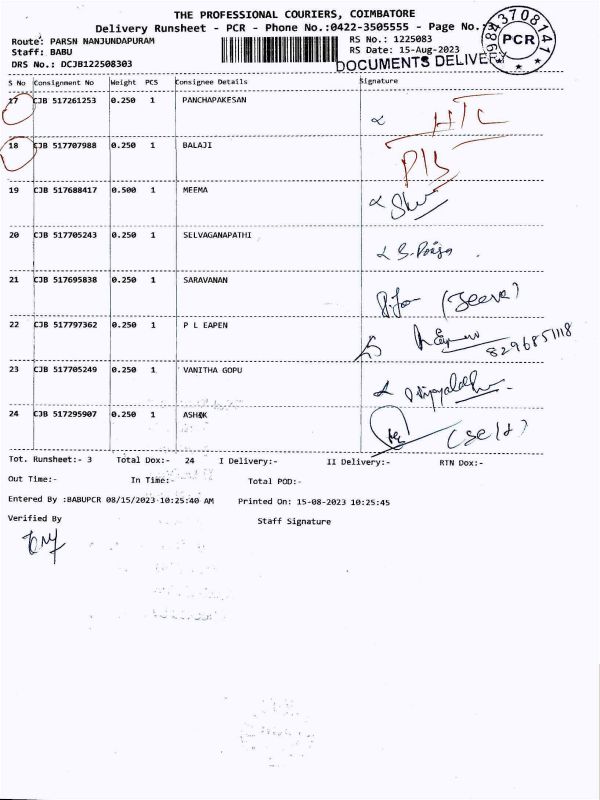 THE PROFESSIONAL COURIERS, COIMBATORE
Delivery Runsheet - PCR - Phone No.:0422-3505555 - Page No.
Route: PARSN NANJUNDAPURAM RS No.: 1225083
Staff: BABU RS Date: 15-Aug-2023
DRS No.: DCJB122508303 DOCUMENTS DELIVERY
PCR
S No Consignment No Weight PCS Consignee Details Signature
17 CJB 517261253 0.250 1 PANCHAPAKESAN
18 CJB 517707988 0.250 1 BALAJI
19 CJB 517688417 0.500 1 MEEMA
20 CJB 517705243 0.250 1 SELVAGANAPATHI
21 CJB 517695838 0.250 1 SARAVANAN (Jeeva)
22 CJB 517797362 0.250 1 P L EAPEN 8296851118
23 CJB 517705249 0.250 1 VANITHA GOPU
24 CJB 517295907 0.250 1 ASHOK (self)
Tot. Runsheet:- 3 Total Dox:- 24 I Delivery:- II Delivery:- RTN Dox:-
Out Time:- In Time:- Total POD:-
Entered By :BABUPCR 08/15/2023 10:25:40 AM Printed On: 15-08-2023 10:25:45
Verified By Staff Signature